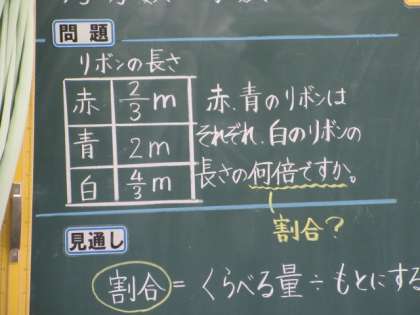 問題
リボンの長さ
赤 2/3 m
青 2m
白 4/3 m
赤、青のリボンは
それぞれ、白のリボンの
長さの何倍ですか。
割合?
見通し
割合=くらべる量÷もとにする